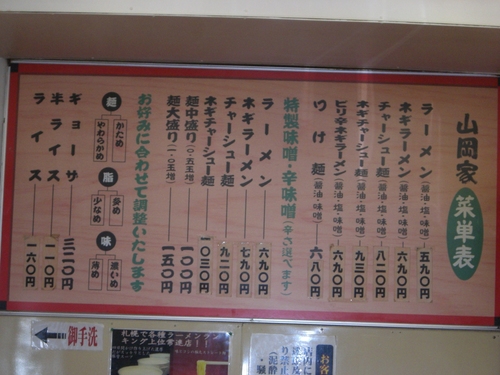 山岡家 菜単表
ラーメン(醤油・塩・味噌) 五九〇円
ネギラーメン(醤油・塩・味噌) 六九〇円
チャーシュー麺(醤油・塩・味噌) 八二〇円
ネギチャーシュー麺(醤油・塩・味噌) 九三〇円
ピリ辛ネギラーメン(醤油・塩・味噌) 六九〇円
つけ麺(醤油・味噌) 六八〇円
特製味噌・辛味噌(辛さ選べます)
ラーメン 六九〇円
ネギラーメン 七九〇円
チャーシュー麺 九二〇円
ネギチャーシュー麺 一〇三〇円
麺中盛り(〇・五玉増) 一〇〇円
麺大盛り(一・〇玉増) 一五〇円
お好みに合わせて調整いたします
麺 かため やわらかめ
脂 多め 少なめ
味 濃いめ 薄め
ギョーサ 三二〇円
半ライス 一一〇円
ライス 一六〇円
御手洗
札幌で各種ラーメンラン
キング上位常連店!!
お客
店内に
り禁止
(泥酔・騒